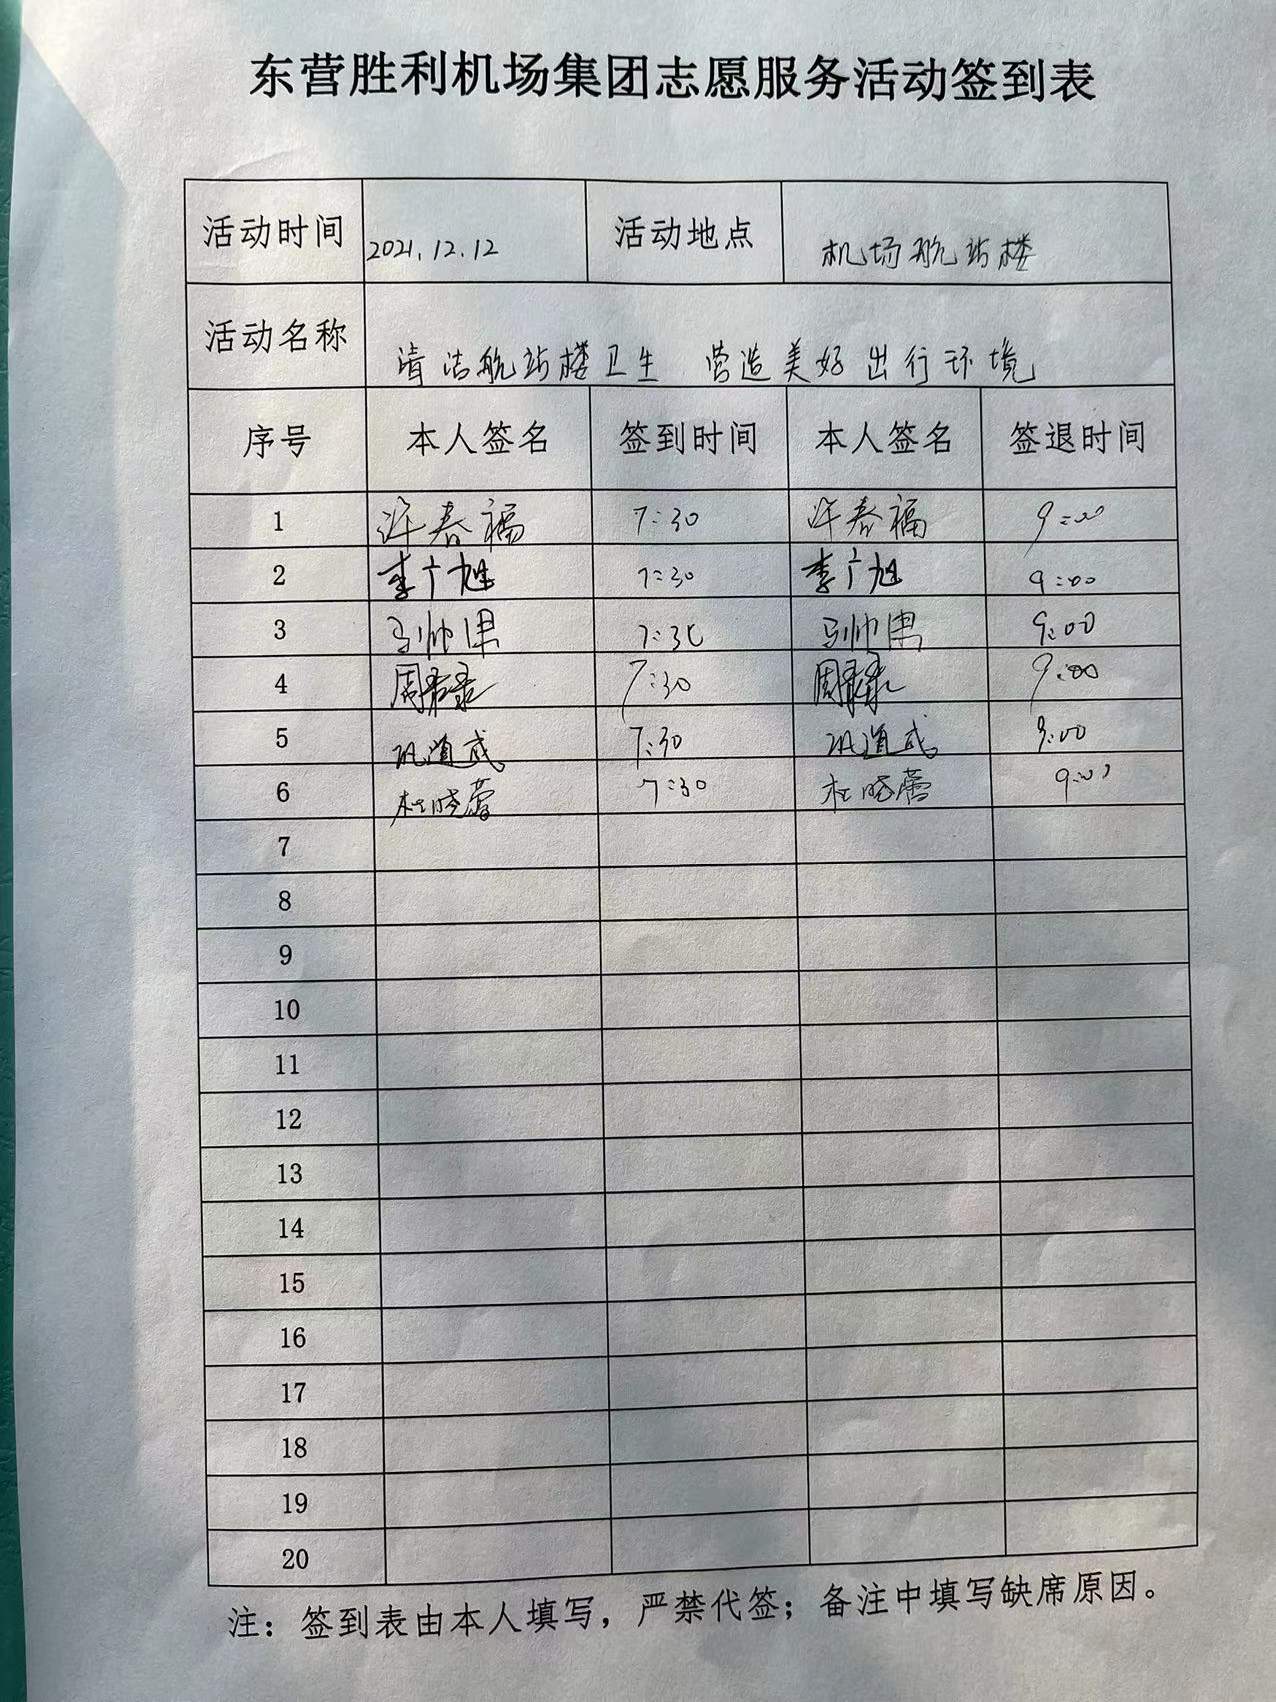 东营胜利机场集团志愿服务活动签到表
活动时间 2021.12.12 活动地点 机场航站楼
活动名称 清洁航站楼卫生 营造美好出行环境
序号 本人签名 签到时间 本人签名 签退时间
1 许春福 7:30 许春福 9:00
2 李广旭 7:30 李广旭 9:00
3 马帅 7:30 马帅 9:00
4 周 7:30 周 9:00
5 巩道成 7:30 巩道成 9:00
6 杜晓蕾 7:30 杜晓蕾 9:00
7
8
9
10
11
12
13
14
15
16
17
18
19
20
注：签到表由本人填写，严禁代签；备注中填写缺席原因。